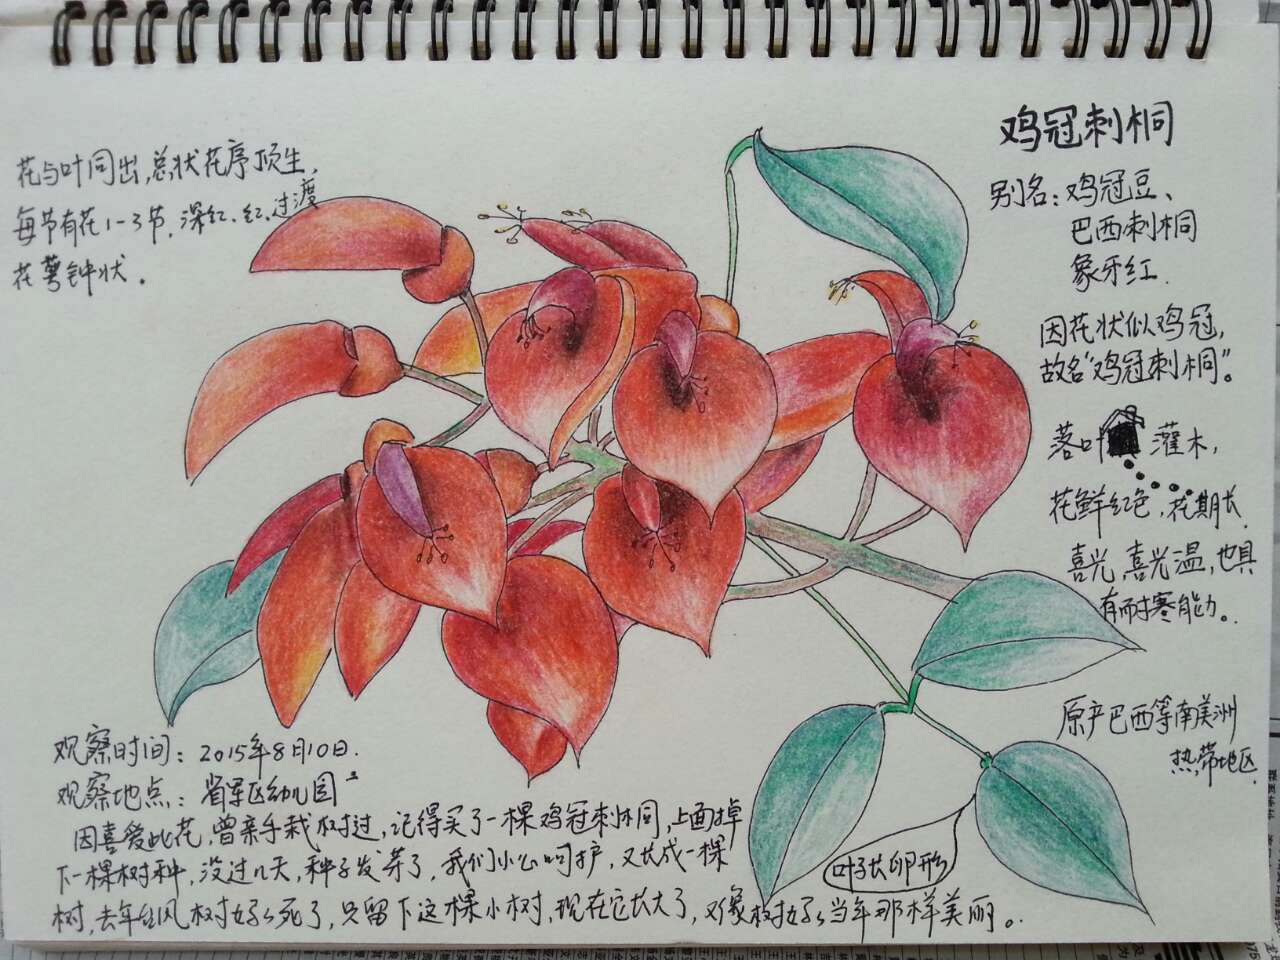 鸡冠刺桐
别名：鸡冠豆、
巴西刺桐
象牙红.
因花状似鸡冠，
故名“鸡冠刺桐”。
落叶灌木，
花鲜红色，花期长.
喜光，喜光温，也具
有耐寒能力。
原产巴西等南美洲
热带地区.
花与叶同出，总状花序顶生，
每节有花1-3节，深红、红、过渡
花萼钟状.
叶子长卵形
观察时间：2015年8月10日.
观察地点：省军区幼儿园
因喜爱此花，曾亲手栽树过，记得买了一棵鸡冠刺桐，上面掉
下一棵树种，没过几天，种子发芽了，我们小心呵护，又长成一棵
树，去年台风树妈妈死了，只留下这棵小树，现在它长大了，对象树妈妈当年那样美丽。